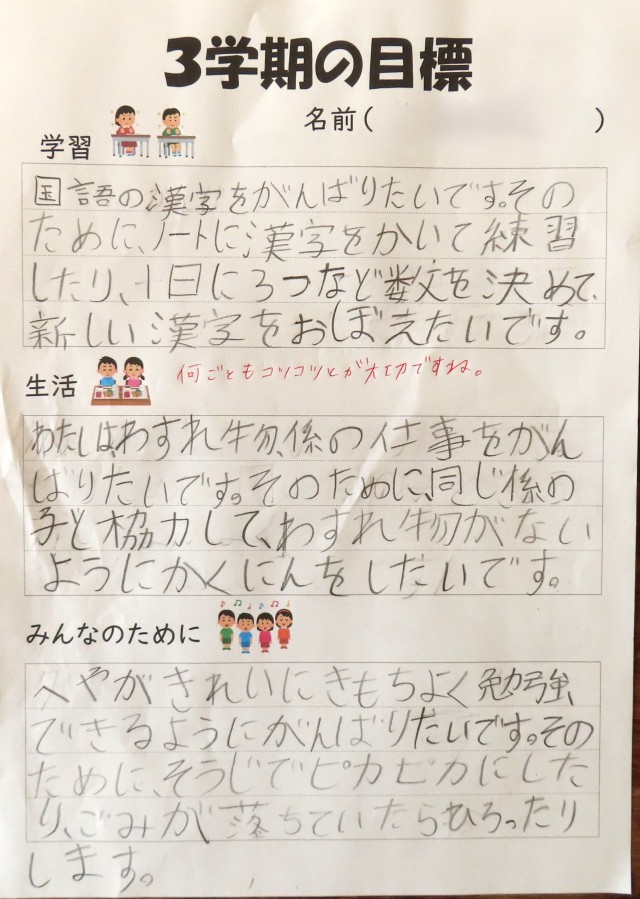 3学期の目標
名前( )
学習
国語の漢字をがんばりたいです。その
ために、ノートに漢字をかいて練習
したり、十日に3つなど数文を決めて、
新しい漢字をおぼえたいです。
何ごともコツコツとが大切ですね。
生活
わたしは、わすれ物係の仕事をがん
ばりたいです。そのために、同じ係の
子と協力して、わすれ物がない
ようにかくにんをしたいです。
みんなのために
へやがきれいにきもちよく勉強
できるようにがんばりたいです。その
ために、そうじでピカピカにした
り、ごみが落ちていたらひろったり
します。